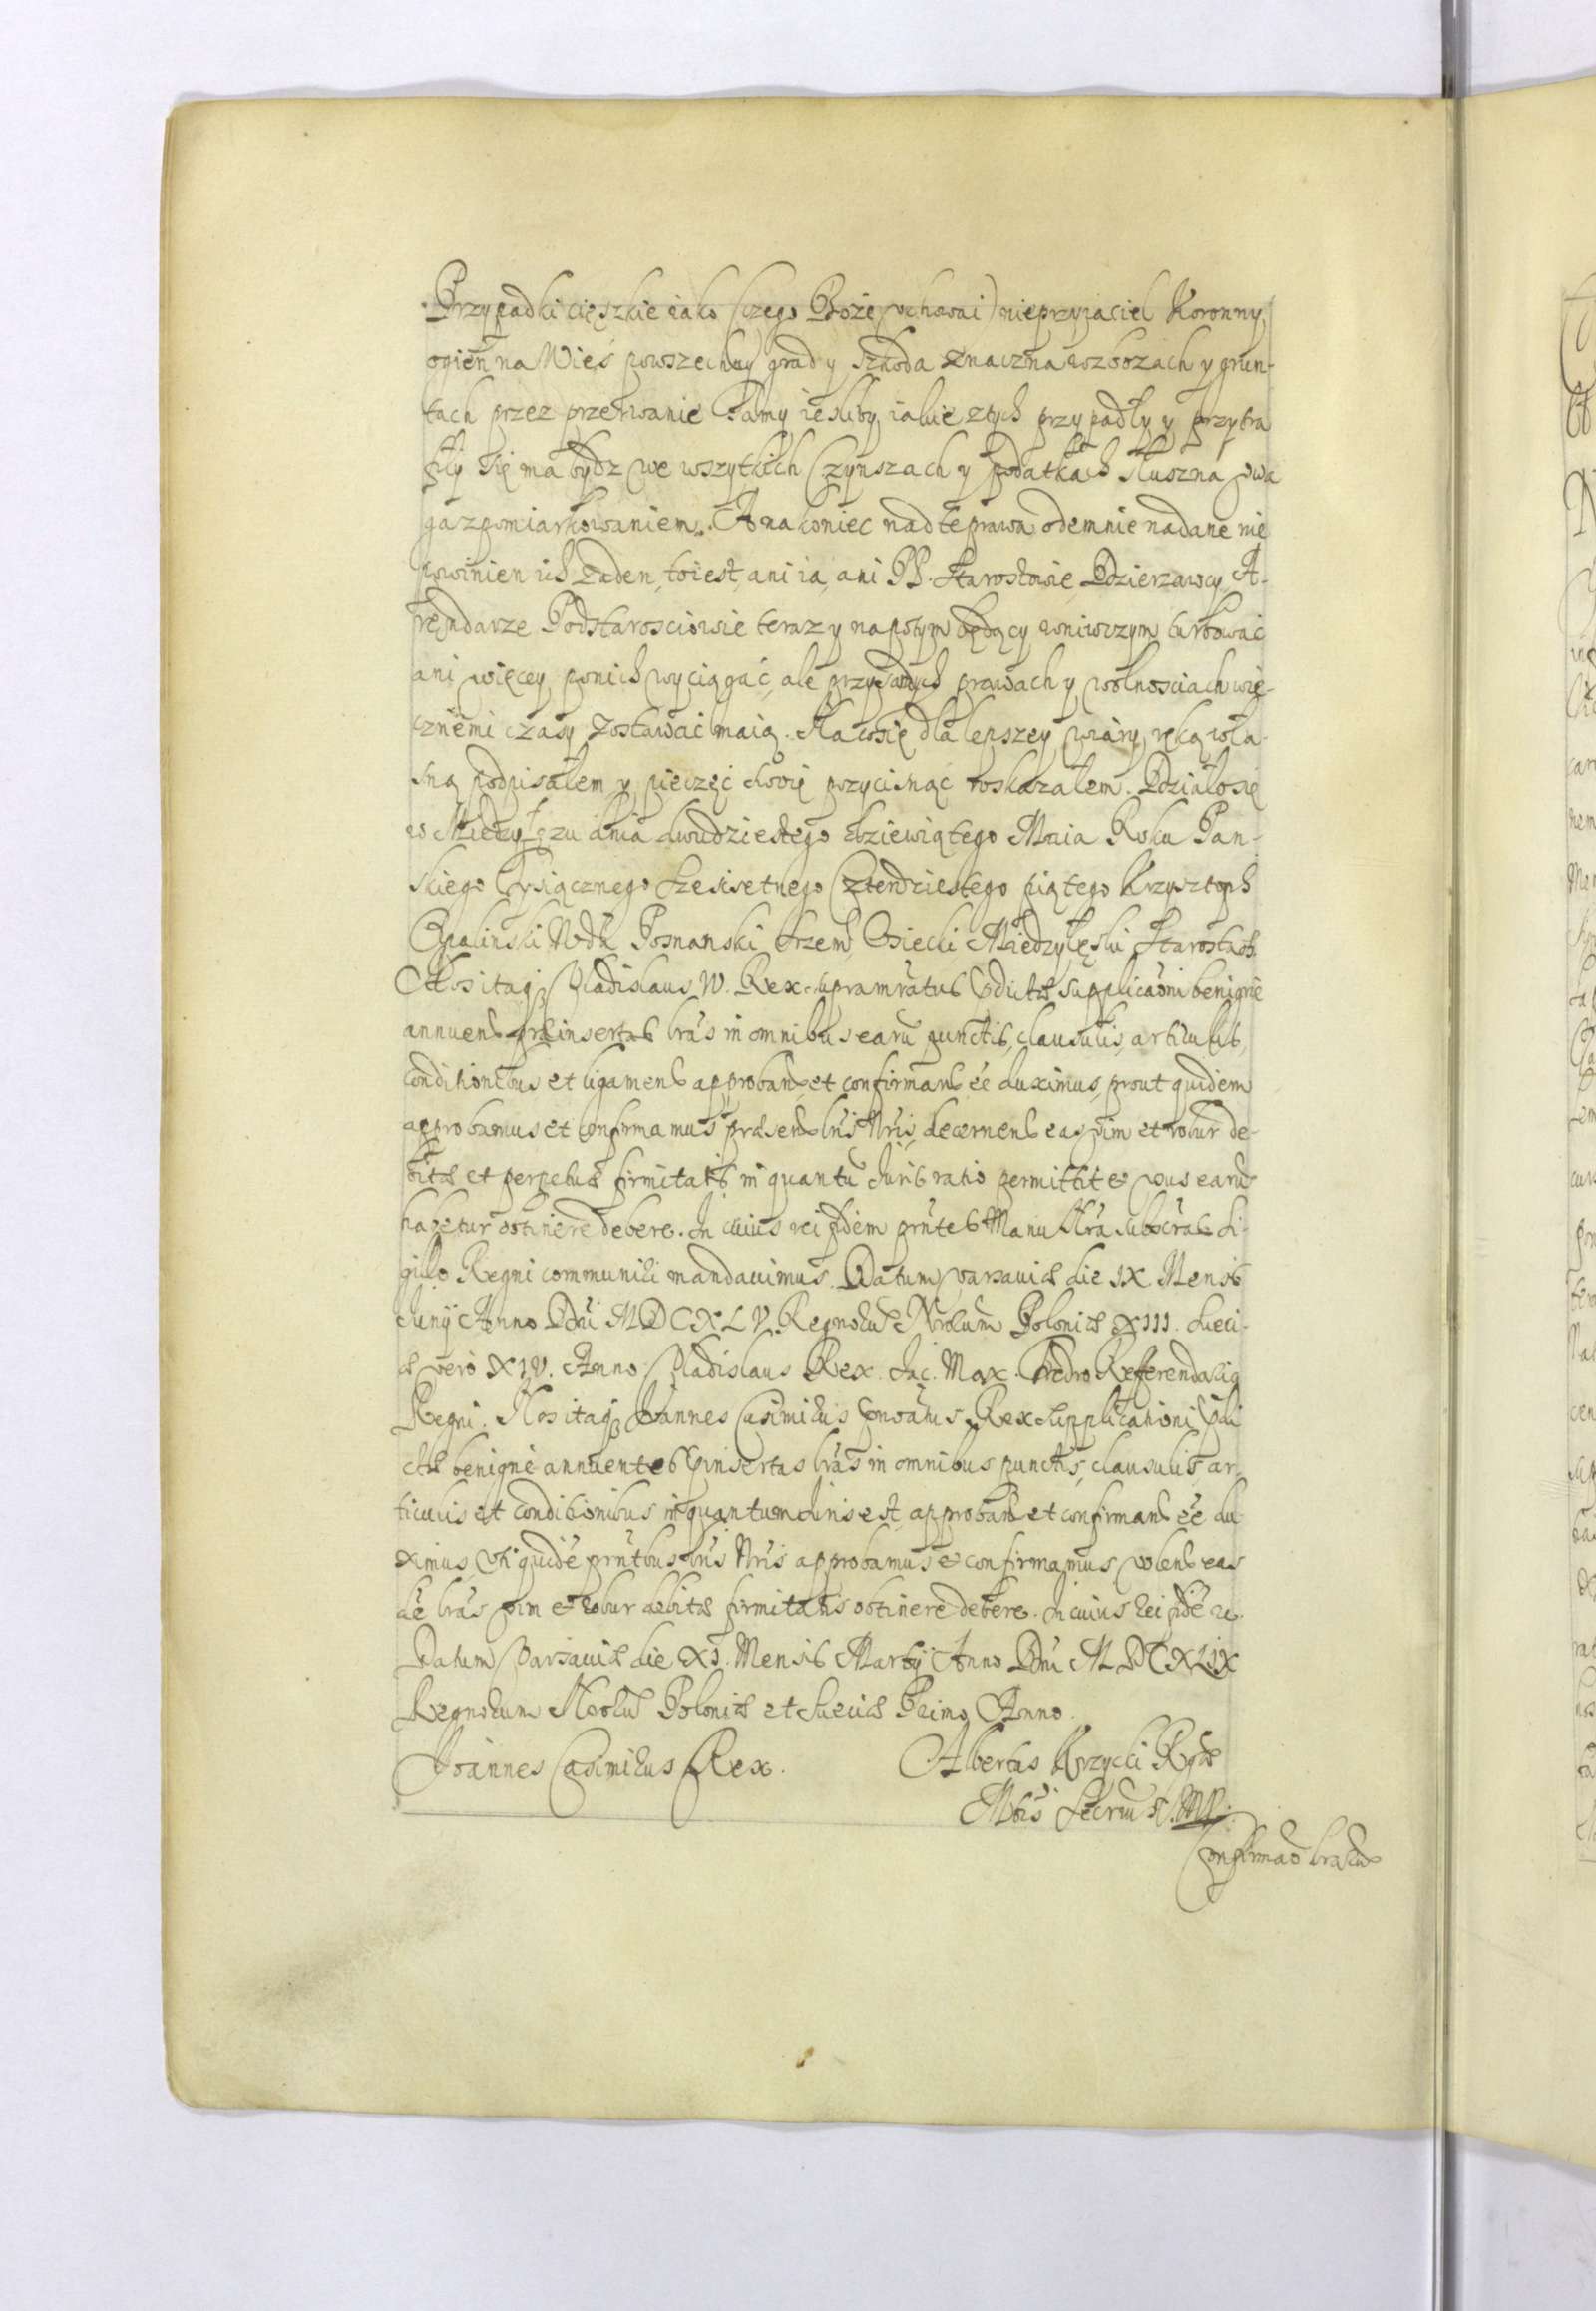 Przypadki cięszkie iako (czego Boże vchowai) nieprzyiaciel Koronny,
ogień na Wieś powszechny grad y szkoda znaczna w zbożach y grun-
tach przez przerwanie tamy ieśliby iakie z tych przypadły y przytra
fiły się ma bydz we wszytkich Czynszach y podatkach słuszna uwa
ga z pomiarkowaniem. A na koniec nad te prawa odemnie nadane nie
powinien ich żaden, to iest, ani ia, ani PP. Starostowie Dzierzawcy, A-
rendarze Podstarosciowie teraz y napotym będący wniwczym turbować
ani więcey ponich wyciągać, ale przy tych prawach y wolnosciach wie-
cznemi czasy zostawać maią. Na co się dla lepszey wiary ręką wła-
sną podpisałem y pieczęć swoię przycisnąć roskazałem. Działo się
w Międzyłęzu dnia dwudziestego dziewiątego Maia Roku Pan-
skiego Tysiącznego Szescsetnego Czterdziestego piątego Krzysztoph
Opalinski Wdã Posnanski Srzem Osiecki Miedzyłęski Starosta
Nos itaq Vladislaus IV. Rex supramratus supplicaõni benigne
annuens præinsertas lras in omnibus earũ punctis, clausulis, articulis,
conditionibus et ligamens approband et confirmand eẽ duximus, prout quidem
approbamus et confirmamus præsend lris Nris, decernens eas vim et robur de-
bitæ et perpetuæ firmitatis in quantũ Juris ratio permittit et vsus earũ
habetur obtinere debere. In cuius rei fidem prntes Manu Nra subscrat Si-
gillo Regni communiri mandauimus. Datum Varsauiæ die IX Mensis
Junij Anno Dni MDCXLV. Regnorũ Nrorum Poloniæ XIII. Sueci-
æ vero XIV. Anno. Vladislaus Rex. Jac. Max. Fredro Referendariq
Regni. Nos itaq Joannes Casimirus Rex supplicationi
benigne annuentes insertas lras in omnibus punctis, clausulis ar-
ticulis et conditionibus in quantum Juris est, approband et confirmand eẽ du
ximus, Vti quidẽ prntbus lris Nris approbamus et confirmamus volens eas
dẽ lras vim et robur debitæ firmitatis obtinere debere. In cuius rei fidẽ
Datum Varsauiæ die XI. Mensis Martij Anno Dni MDCXLIX
Regnorum Nrorũ Poloniæ et Sueciæ Primo Anno.
Joannes Casimirus Rex. Albertus Krzycki
MP
Confirmaõ